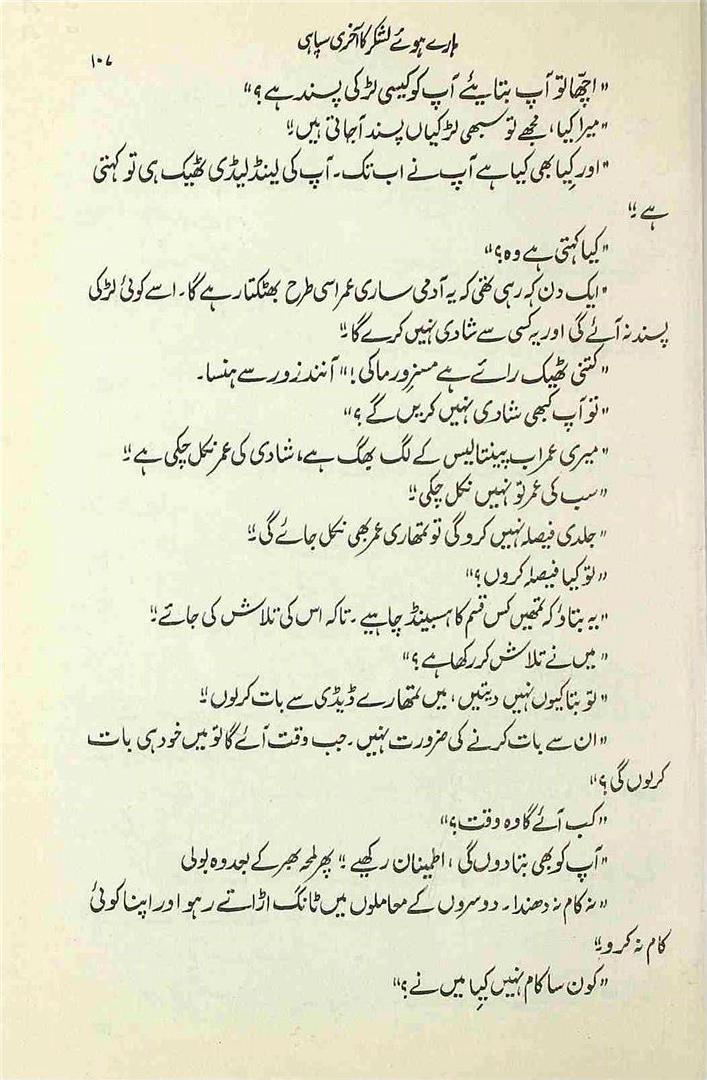 ہارے ہوئے لشکر کا آخری سپاہی
۱۰۷
"اچھّا تو آپ بتایئے آپ کو کیسی لڑکی پسند ہے؟"
"میرا کیا، مجھے تو سبھی لڑکیاں پسند آجاتی ہیں۔"
"اور کیا بھی کیا ہے آپ نے اب تک۔ آپ کی لینڈ لیڈی ٹھیک ہی تو کہتی
ہے۔"
"کیا کہتی ہے وہ؟"
"ایک دن کہہ رہی تھی کہ یہ آدمی ساری عمر اسی طرح بھٹکتا رہے گا۔ اسے کوئی لڑکی
پسند نہ آئے گی اور یہ کسی سے شادی نہیں کرے گا۔"
"کتنی ٹھیک رائے ہے مسنرِ ورما کی!" آنند زور سے ہنسا۔
"تو آپ کبھی شادی نہیں کریں گے؟"
"میری عمر اب پینتالیس کے لگ بھگ ہے، شادی کی عمر نکل چکی ہے۔"
"سب کی عمر تو نہیں نکل چکی۔"
"جلدی فیصلہ نہیں کروگی تو تمھاری عمر بھی نکل جائے گی۔"
"تو کیا فیصلہ کروں؟"
"یہ بتاؤ کہ تمھیں کس قسم کا ہسبینڈ چاہیے۔ تاکہ اس کی تلاش کی جائے۔"
"میں نے تلاش کر رکھا ہے؟"
"تو بتا کیوں نہیں دیتیں، میں تمھارے ڈیڈی سے بات کرلوں۔"
"ان سے بات کرنے کی ضرورت نہیں۔ جب وقت آئے گا تو میں خود ہی بات
کرلوں گی؟"
"کب آئے گا وہ وقت؟"
"آپ کو بھی بتادوں گی، اطمینان رکھیے۔" پھر لمحہ بھر کے بعد وہ بولی
"نہ کام نہ دھندا۔ دوسروں کے معاملوں میں ٹانگ اڑاتے رہو اور اپنا کوئی
کام نہ کرو۔"
"کون سا کام نہیں کیا میں نے؟"